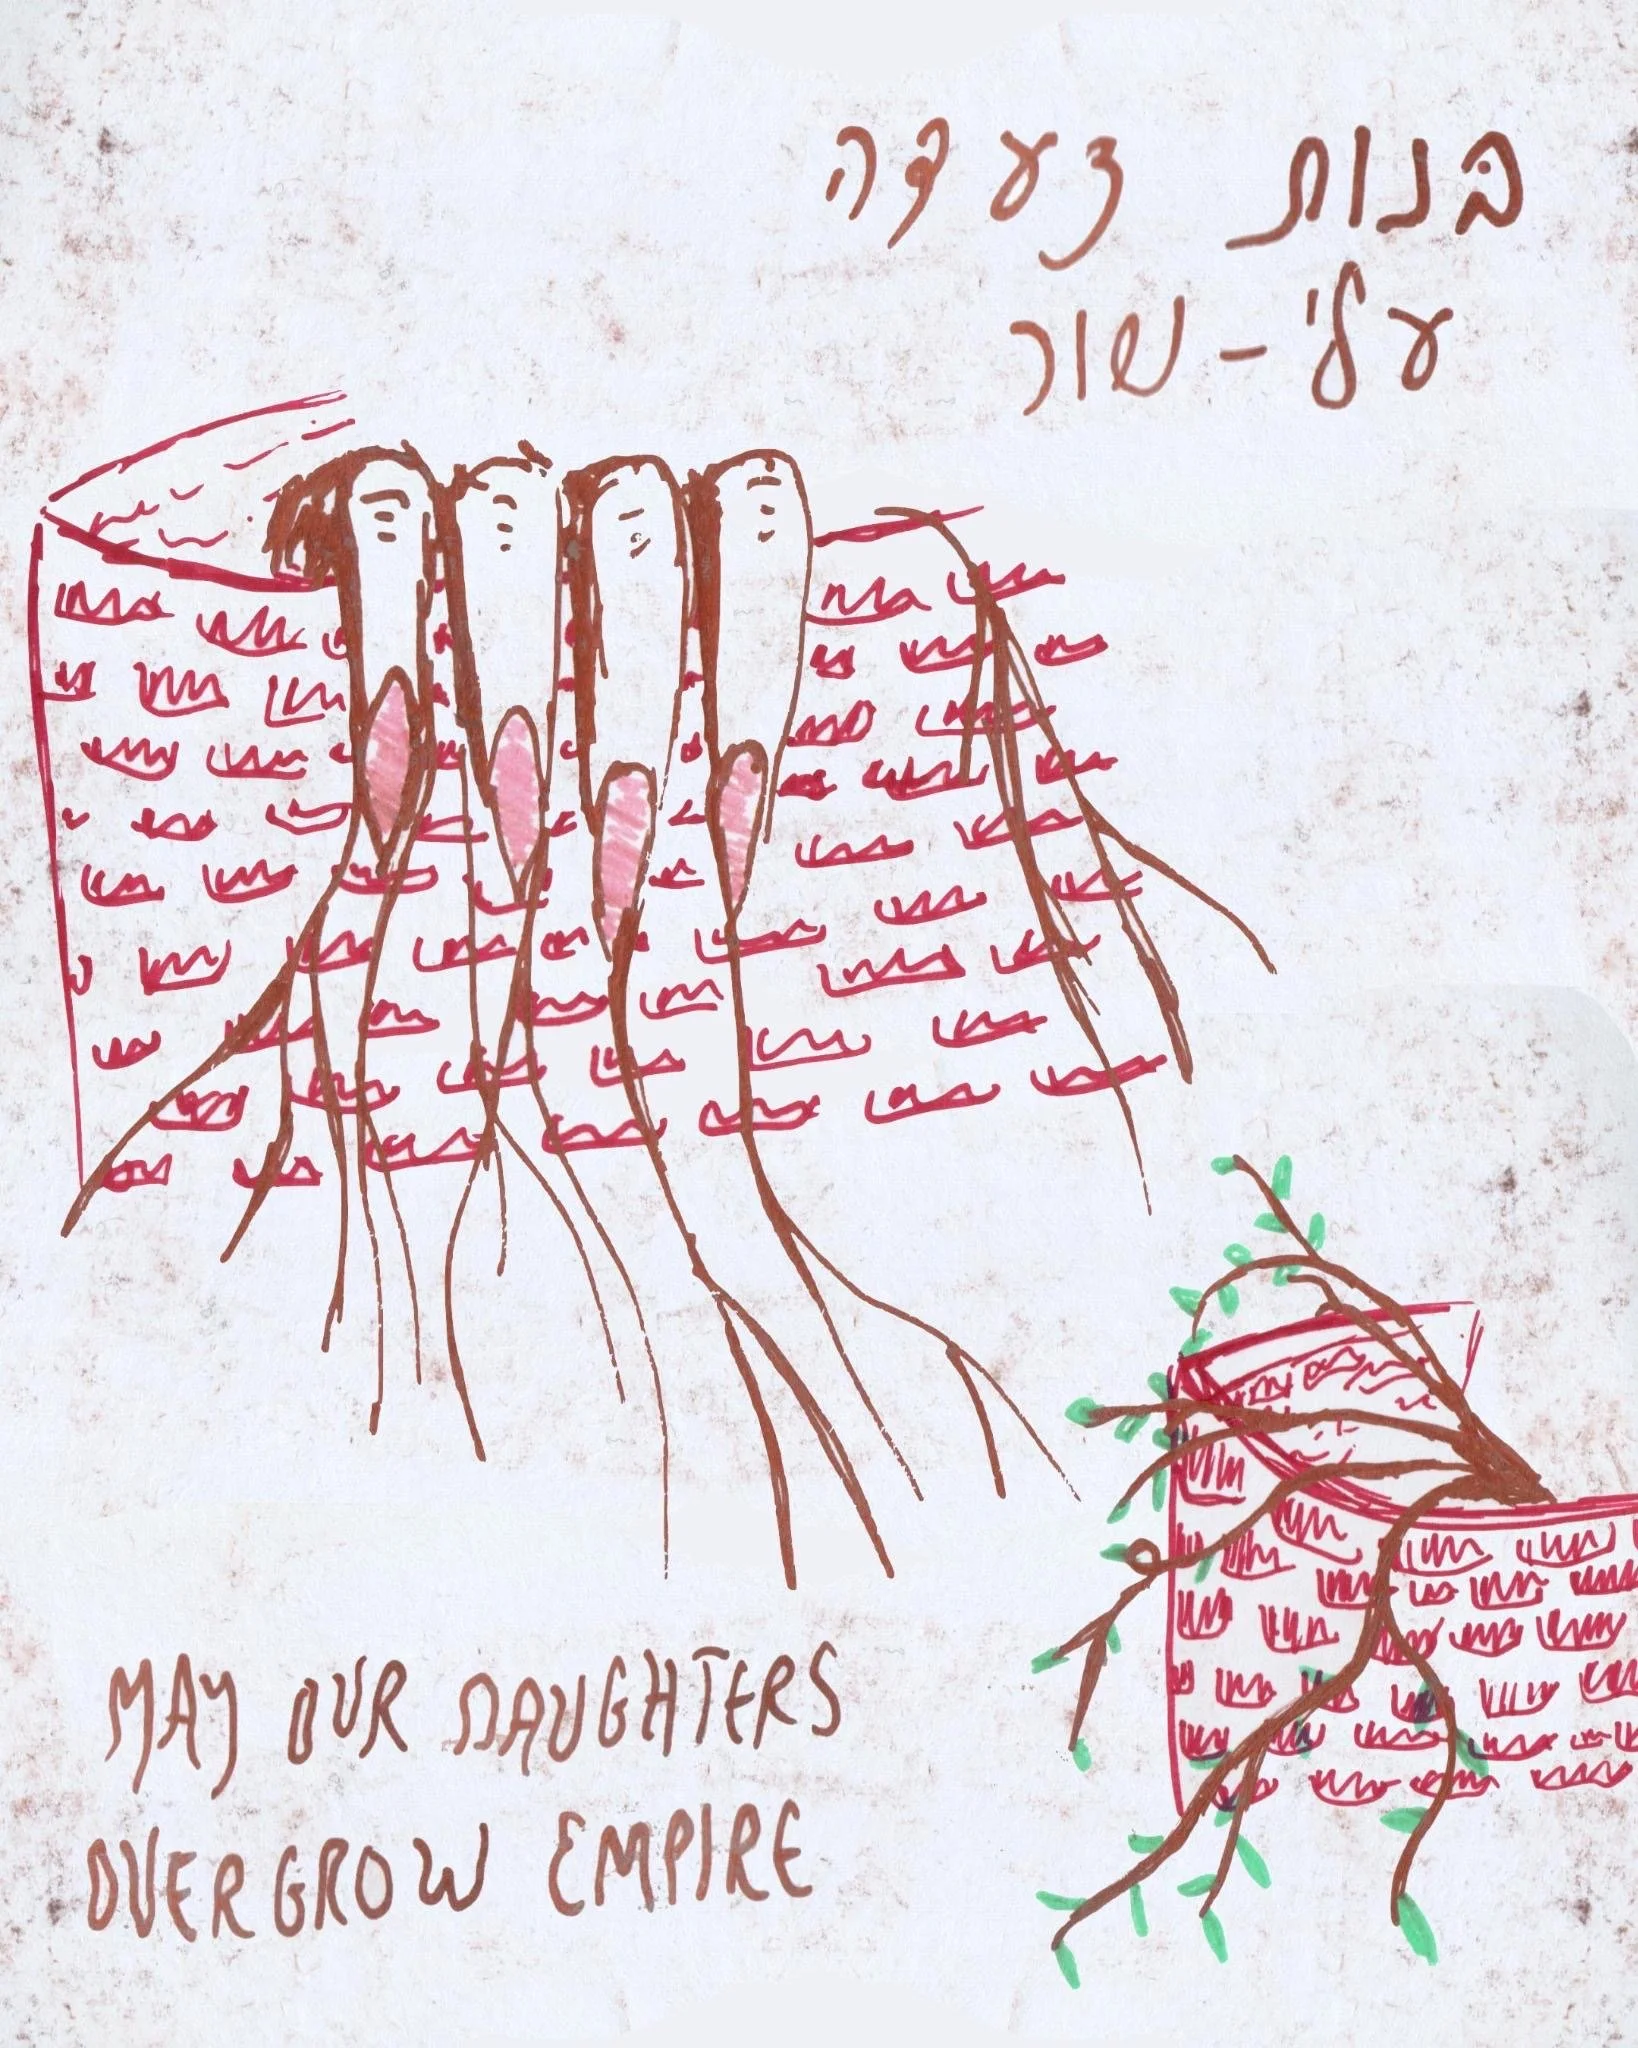 בּנות צעדה
עלי-שור
MAY OUR DAUGHTERS
OVERGROW EMPIRE